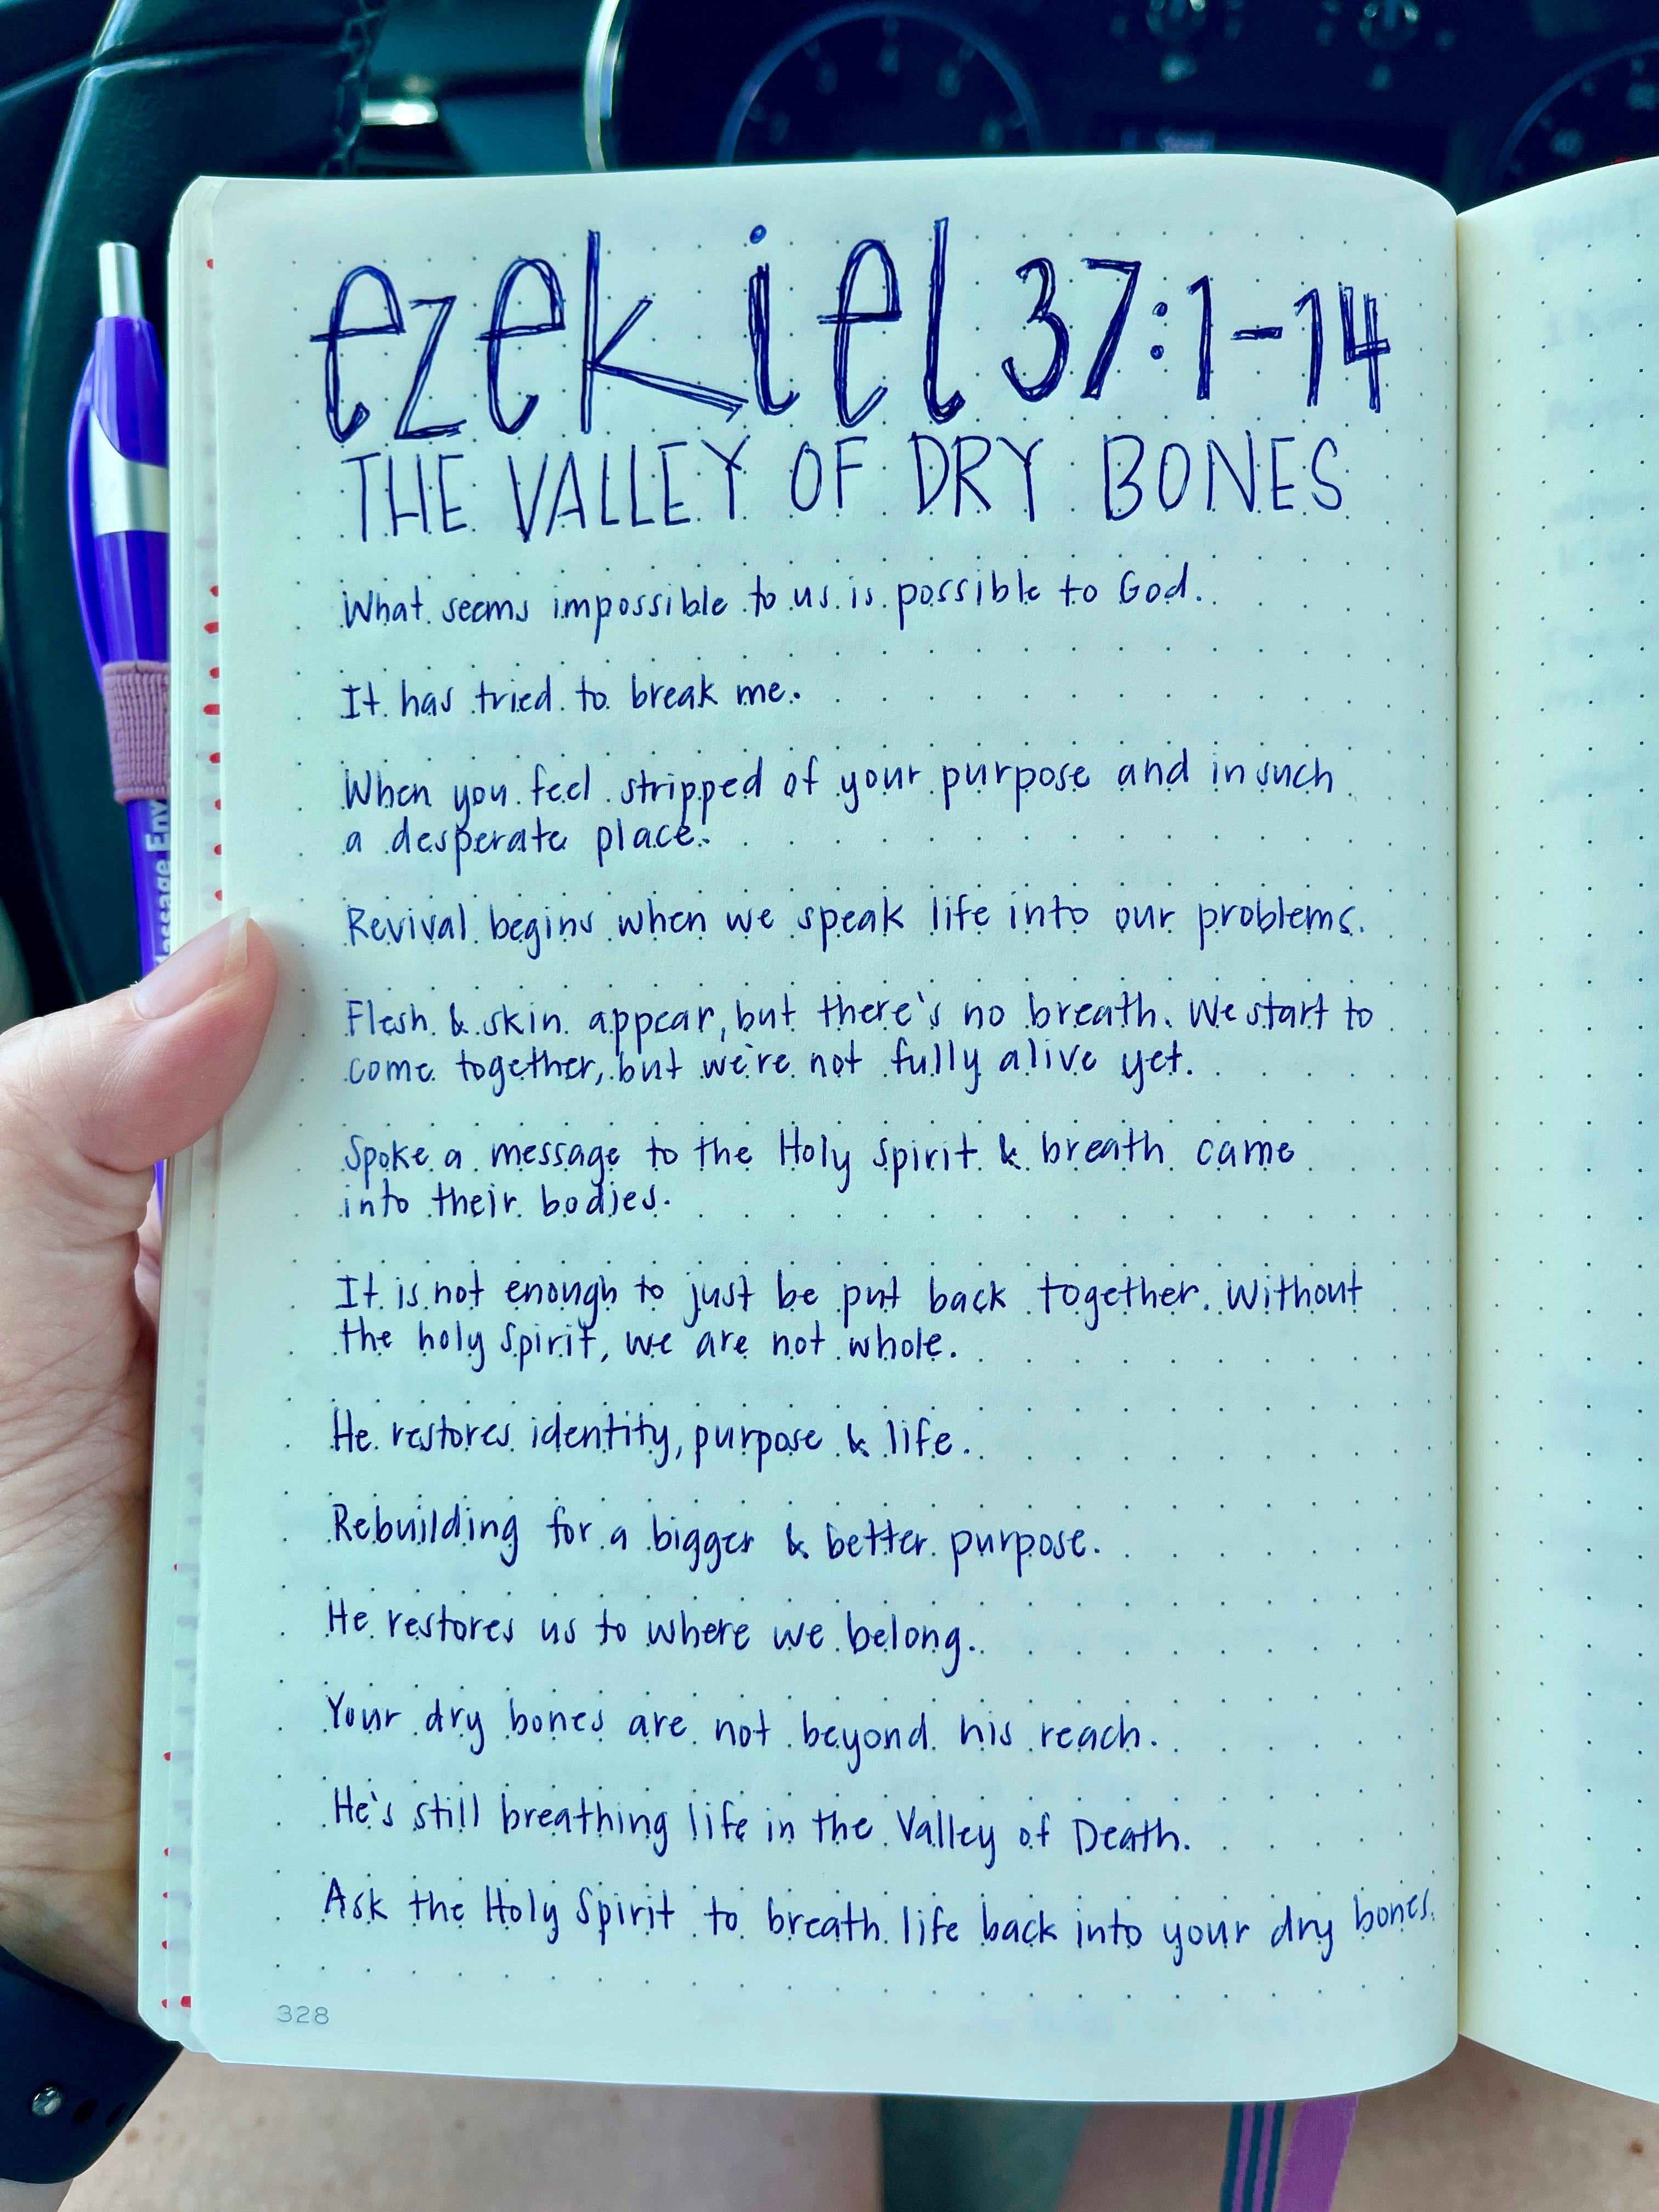 ezekiel 37:1-14
THE VALLEY OF DRY BONES
What seems impossible to us is possible to God.
It has tried to break me.
When you feel stripped of your purpose and in such
a desperate place.
Revival begins when we speak life into our problems.
Flesh & skin appear, but there's no breath. We start to
come together, but we're not fully alive yet.
Spoke a message to the Holy Spirit & breath came
into their bodies.
It is not enough to just be put back together. Without
the holy Spirit, we are not whole.
He restores identity, purpose & life.
Rebuilding for a bigger & better purpose.
He restores us to where we belong.
Your dry bones are not beyond his reach.
He's still breathing life in the Valley of Death.
Ask the Holy Spirit to breath life back into your dry bones.
328